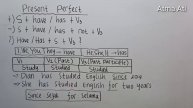 Atma Ati
Present Perfect
+) S + have / has + V3
-) S + have / has + not + V3
?) Have / Has + S + V3 ?
I, We, You, They → Have, He, She, It → Has
V1 V2 (Past) V3 (Past Participle)
Study Studied Studied
→ Dian has studied English since 2014
→ She has studied English for two years
Since : sejak for : selama